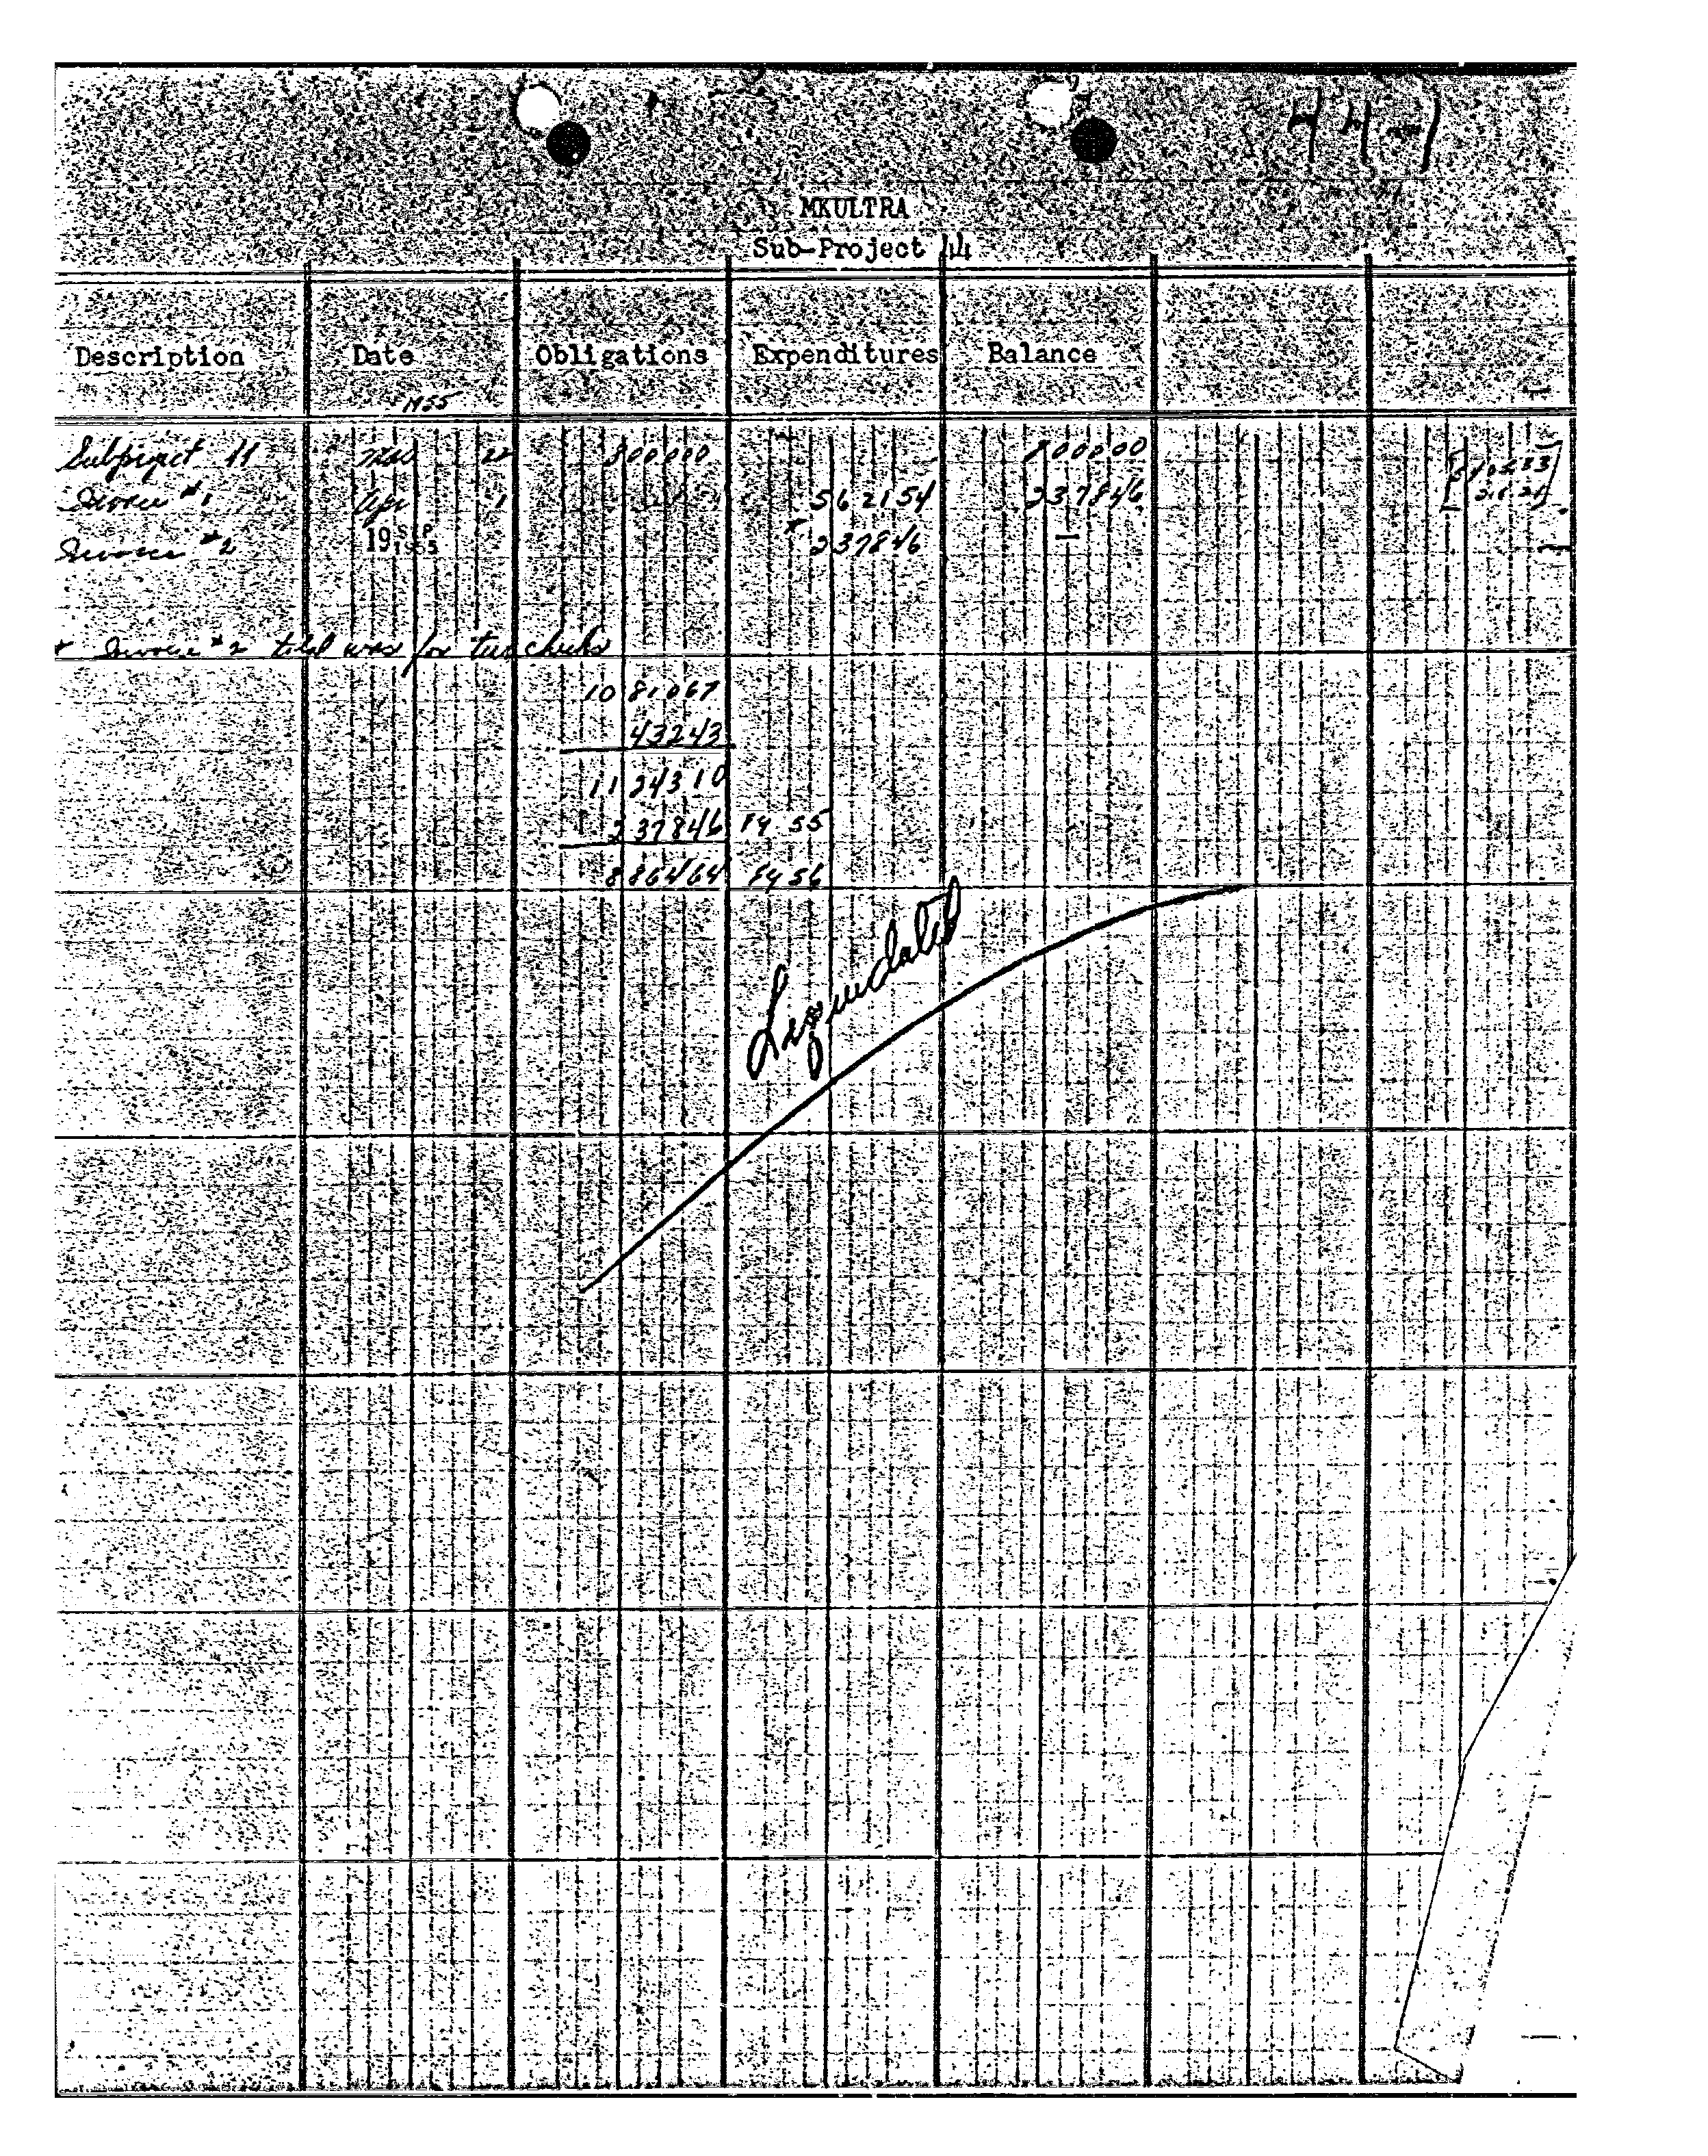 44-1
MKULTRA
Sub-Project 44
Description Date Obligations Expenditures Balance
1955
Subproject 44 Mar 22 800000 800000
Invoice #1 Apr 1 562154 237846
Invoice #2 19 SEP 1955 * 237846 —
* Invoice #2 total was for two checks
1081067
43243
1124310
237846 FY 55
886464 FY 56
Liquidated